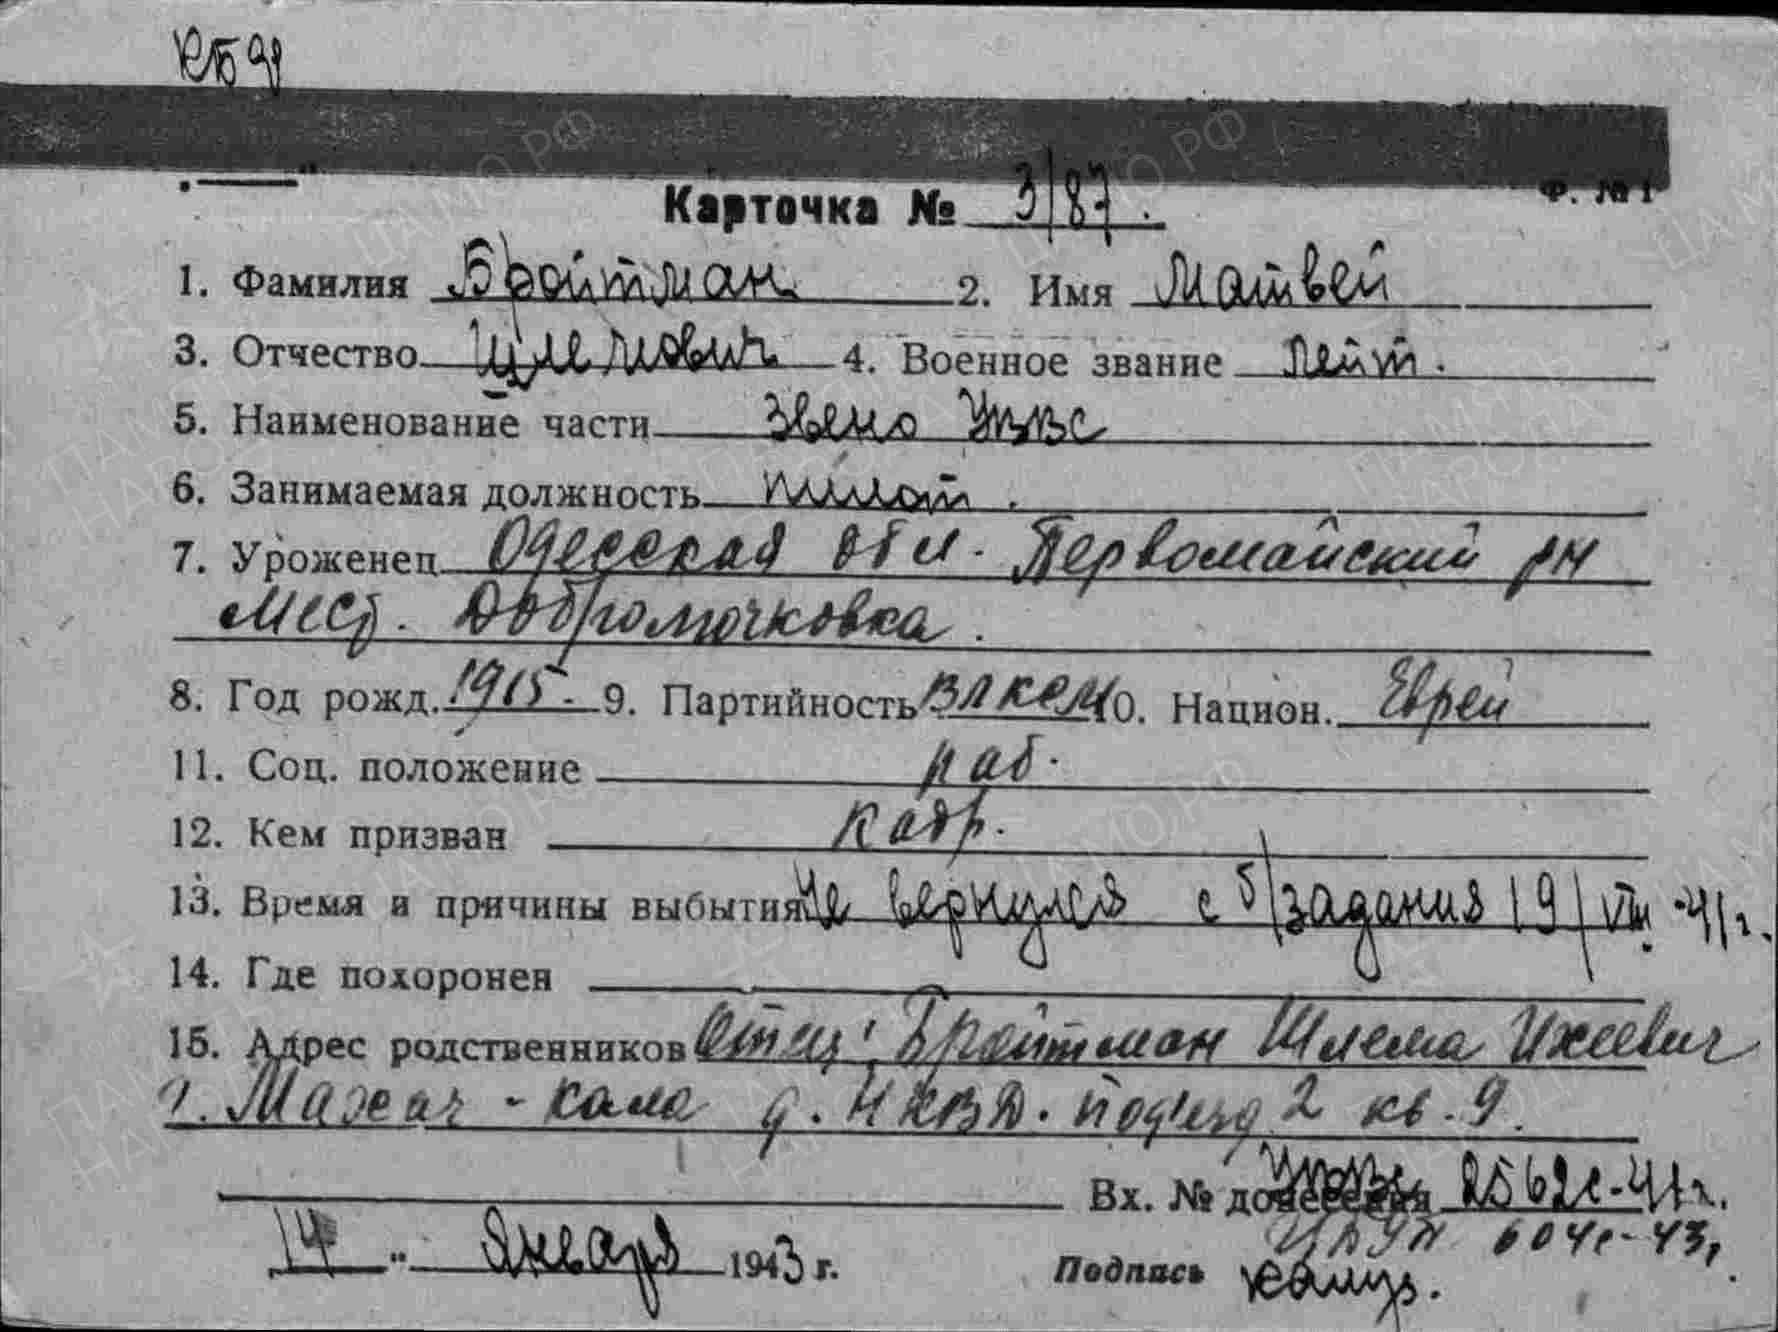 Ф. № 1
Карточка № 3/87.
1. Фамилия Бройтман 2. Имя Матвей
3. Отчество Шлемович 4. Военное звание Лейт.
5. Наименование части Звено УВВС
6. Занимаемая должность пилот.
7. Уроженец Одесская обл. Первомайский рн
мест. Добромочковка.
8. Год рожд. 1915. 9. Партийность ВЛКСМ 10. Национ. Еврей
11. Соц. положение раб.
12. Кем призван Кадр.
13. Время и причины выбытия Не вернулся с б/задания 19/VIII-41 г.
14. Где похоронен
15. Адрес родственников Отец: Бройтман Шлема
г. Махач-кала д. НКВД. подъезд 2 кв. 9.
Вх. № донесения 2562с-41 г.
604с-43,
14 " Января 1943 г. Подпись